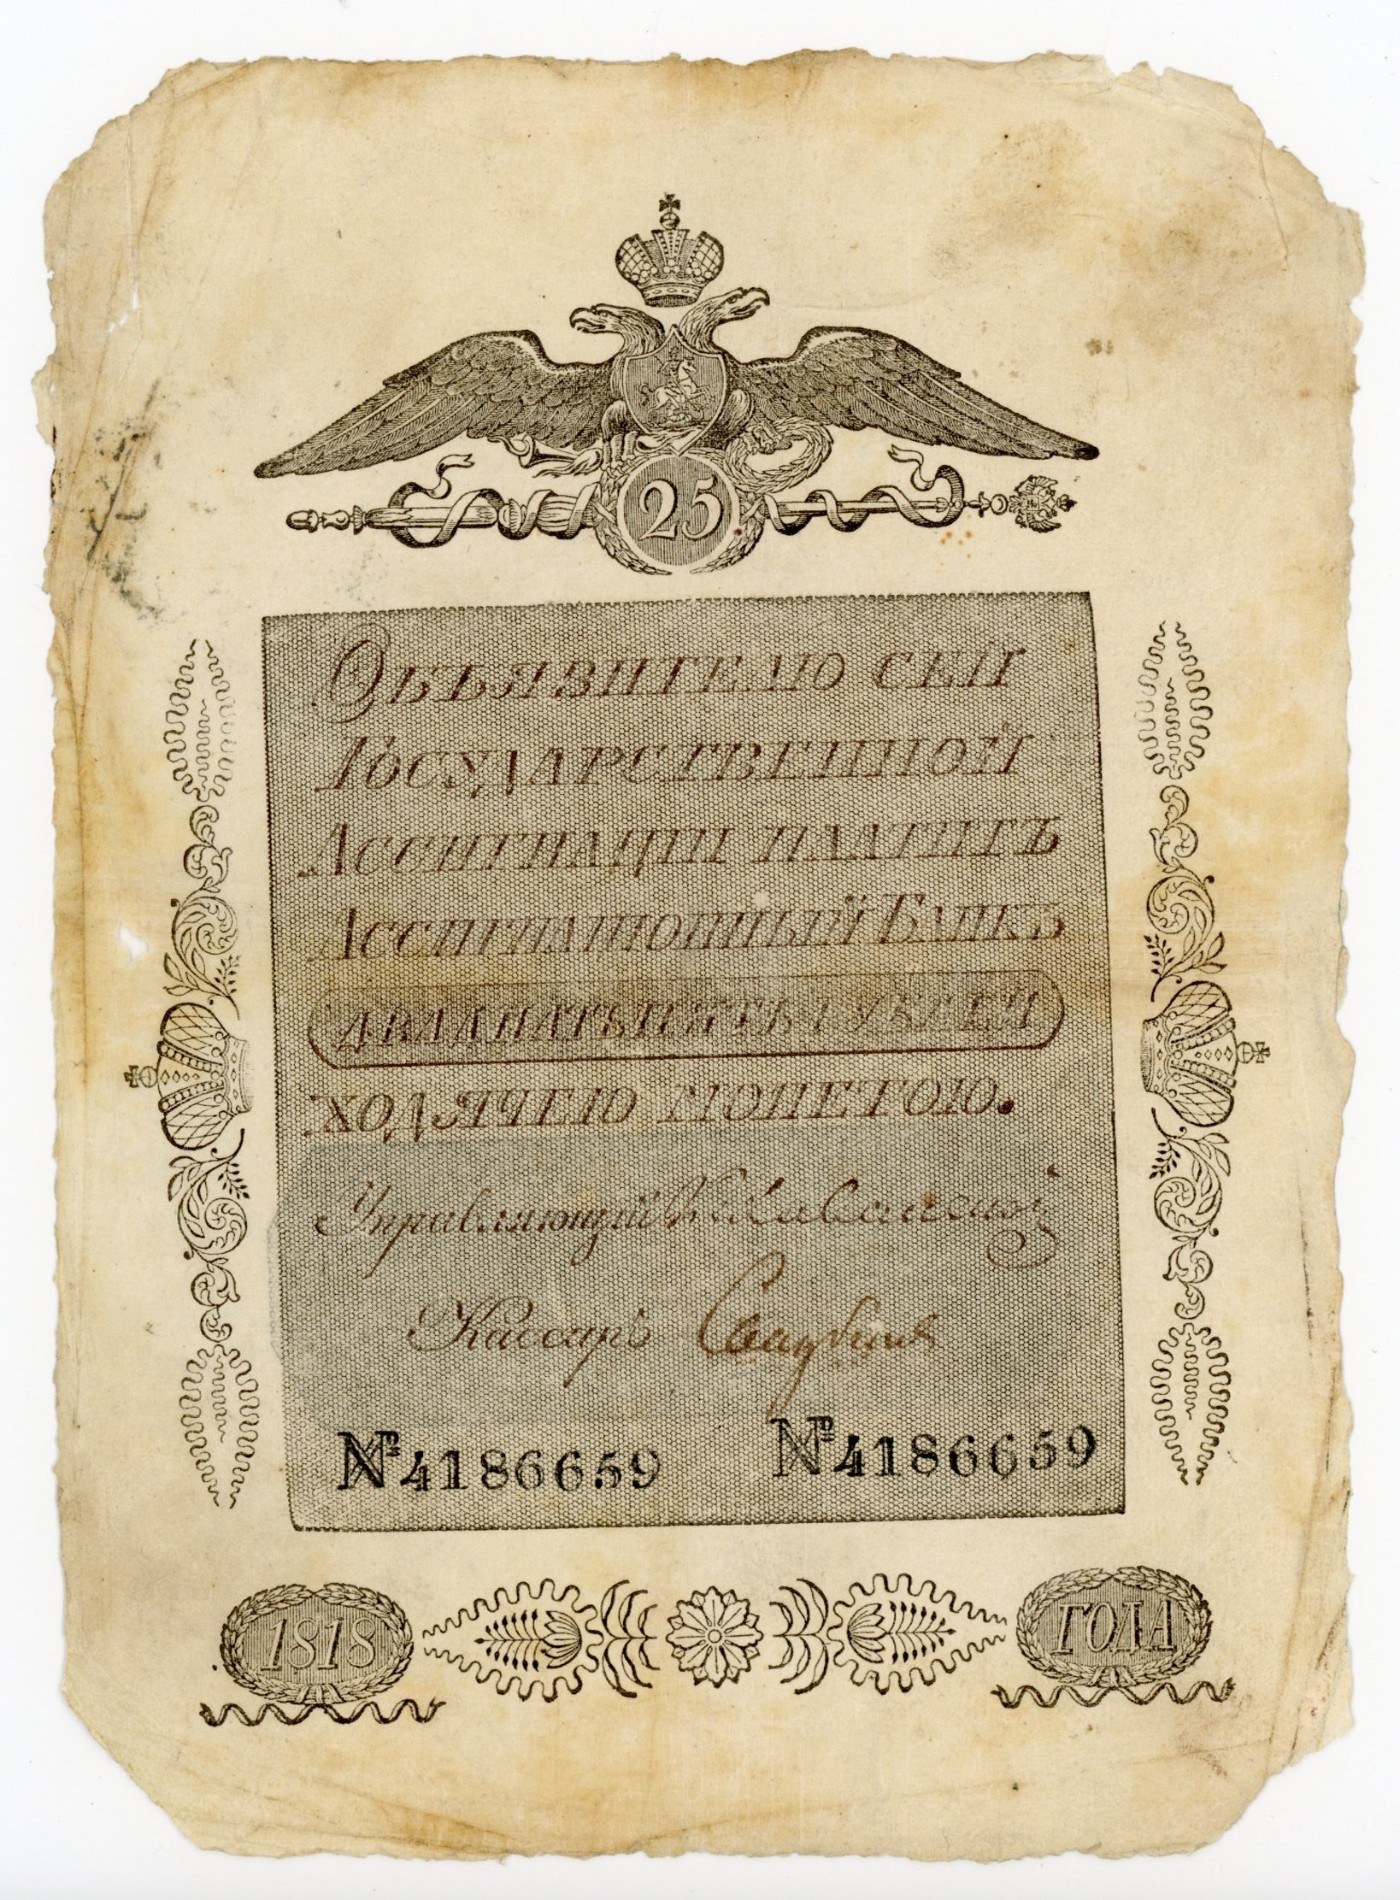 25
Объявителю сей
Государственной
Ассигнаціи платитъ
Ассигнаціонный Банкъ
двадцать пять рублей
ходячею монетою.
Управляющій
Кассиръ
№ 4186659 № 4186659
1818 ГОДА